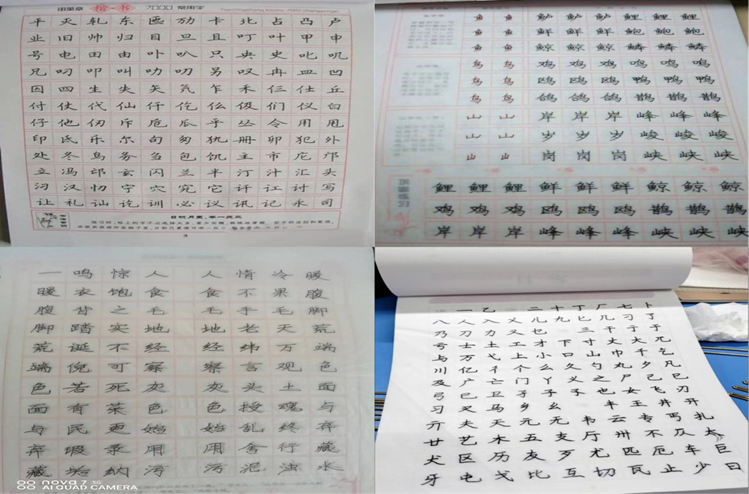 田英章 楷·书 7000 常用字
平 灭 轧 东 匝 劢 卡 北 占 凸 卢
业 旧 帅 归 目 旦 且 叮 叶 甲 申
号 电 田 由 卟 叭 只 央 史 叱 叽
兄 叼 叩 叫 叻 叨 另 叹 冉 皿 凹
囚 四 生 失 矢 氕 乍 禾 仨 仕 丘
付 仗 代 仙 仟 仡 仫 伋 们 仪 白
仔 他 仞 斥 卮 瓜 乎 丛 令 用 甩
印 氐 乐 尔 句 匆 犰 册 卯 犯 外
处 冬 鸟 务 刍 包 饥 主 市 庀 邝
立 冯 邙 玄 闪 兰 半 汀 汁 汇 头
汈 汉 忉 宁 穴 宄 它 讦 讧 讨 写
让 礼 讪 讫 训 必 议 讯 记 永 司
鱼 鱼 鲈 鲈 鲈 鲈 鲈 鲈
鱼 鱼 鲤 鲤 鲜 鲜 鲍 鲍 鲍
鱼 鱼 鲸 鲸 鲸 鲸 鳞 鳞 鳞
鸟 鸟 鸡 鸡 鸡 鸡 鸣 鸣 鸣
鸟 鸟 鸥 鸥 鸥 鸥 鸭 鸭 鸭
鸟 鸟 鸽 鸽 鸽 鸽 鹊 鹊 鹊
山 山 岸 岸 岸 岸 峰 峰 峰
山 山 岁 岁 岁 岁 峻 峻 峻
山 山 岗 岗 岗 岗 峡 峡 峡
鲤 鲤 鲤 鲜 鲜 鲜 鲸 鲸 鲸
鸡 鸡 鸡 鸥 鸥 鸥 鹊 鹊 鹊
岸 岸 岸 峰 峰 峰 峡 峡 峡
一 鸣 惊 人 人 情 冷 暖
暖 衣 饱 食 食 不 果 腹
腹 背 之 毛 毛 手 毛 脚
脚 踏 实 地 地 老 天 荒
荒 诞 不 经 经 纬 万 端
端 倪 可 察 察 言 观 色
色 若 死 灰 灰 头 土 面
面 有 菜 色 色 授 魂 与
与 民 更 始 始 乱 终 弃
弃 瑕 录 用 用 舍 行 藏
藏 垢 纳 污 污 泥 浊 水
nova 7
AI QUAD CAMERA
一 乙 二 十 丁 厂 七 卜
八 人 入 乂 儿 九 匕 几 刁 了
乃 刀 力 又 乜 三 干 亍 于
亏 士 土 工 才 下 寸 丈 大 兀
与 万 弋 上 小 口 山 巾 千 乞
川 亿 彳 个 么 久 勺 丸 夕 凡
及 广 亡 门 丫 义 之 尸 已 巳
弓 己 卫 孑 孓 也 女 飞 刃
习 叉 马 乡 幺 丰 王 井 开
亓 夫 天 元 无 韦 云 专 丐 扎
廿 艺 木 五 支 厅 卅 不 仄 太
犬 区 历 友 歹 尤 匹 厄 车 巨
牙 屯 戈 比 互 切 瓦 止 少 曰